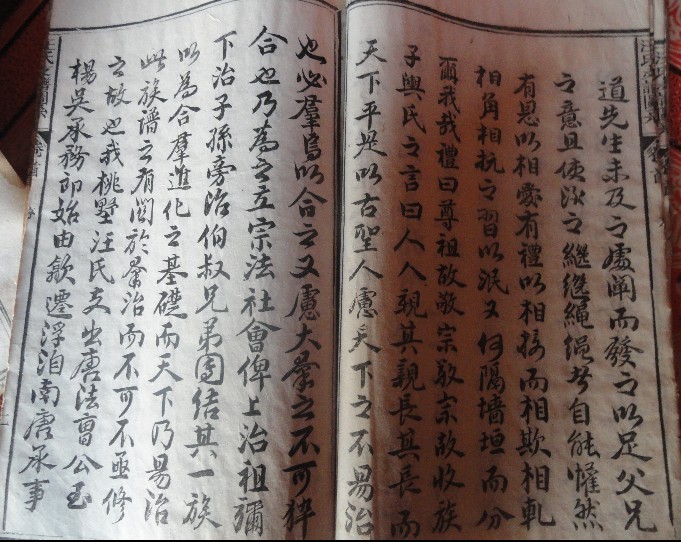 道先生未及之處闡而發之以足父兄
之意且使汝之繼繼繩繩者自能懽然
有恩以相愛有禮以相接而相欺相軋
相角相抗之習以泯又何隔墻垣而分
爾我哉禮曰尊祖故敬宗敬宗故收族
子輿氏之言曰人人親其親長其長而
天下平是以古聖人慮天下之不易治
也必羣焉以合之又慮大羣之不可猝
合也乃為之立宗法社會俾上治祖禰
下治子孫旁治伯叔兄弟團结其一族
以為合羣進化之基礎而天下乃易治
此族譜之有關於羣治而不可不亟修
之故也我桃墅汪氏支出唐法曹公玉
楊吳承務郎始由歙遷浮泊南唐承事
卷首